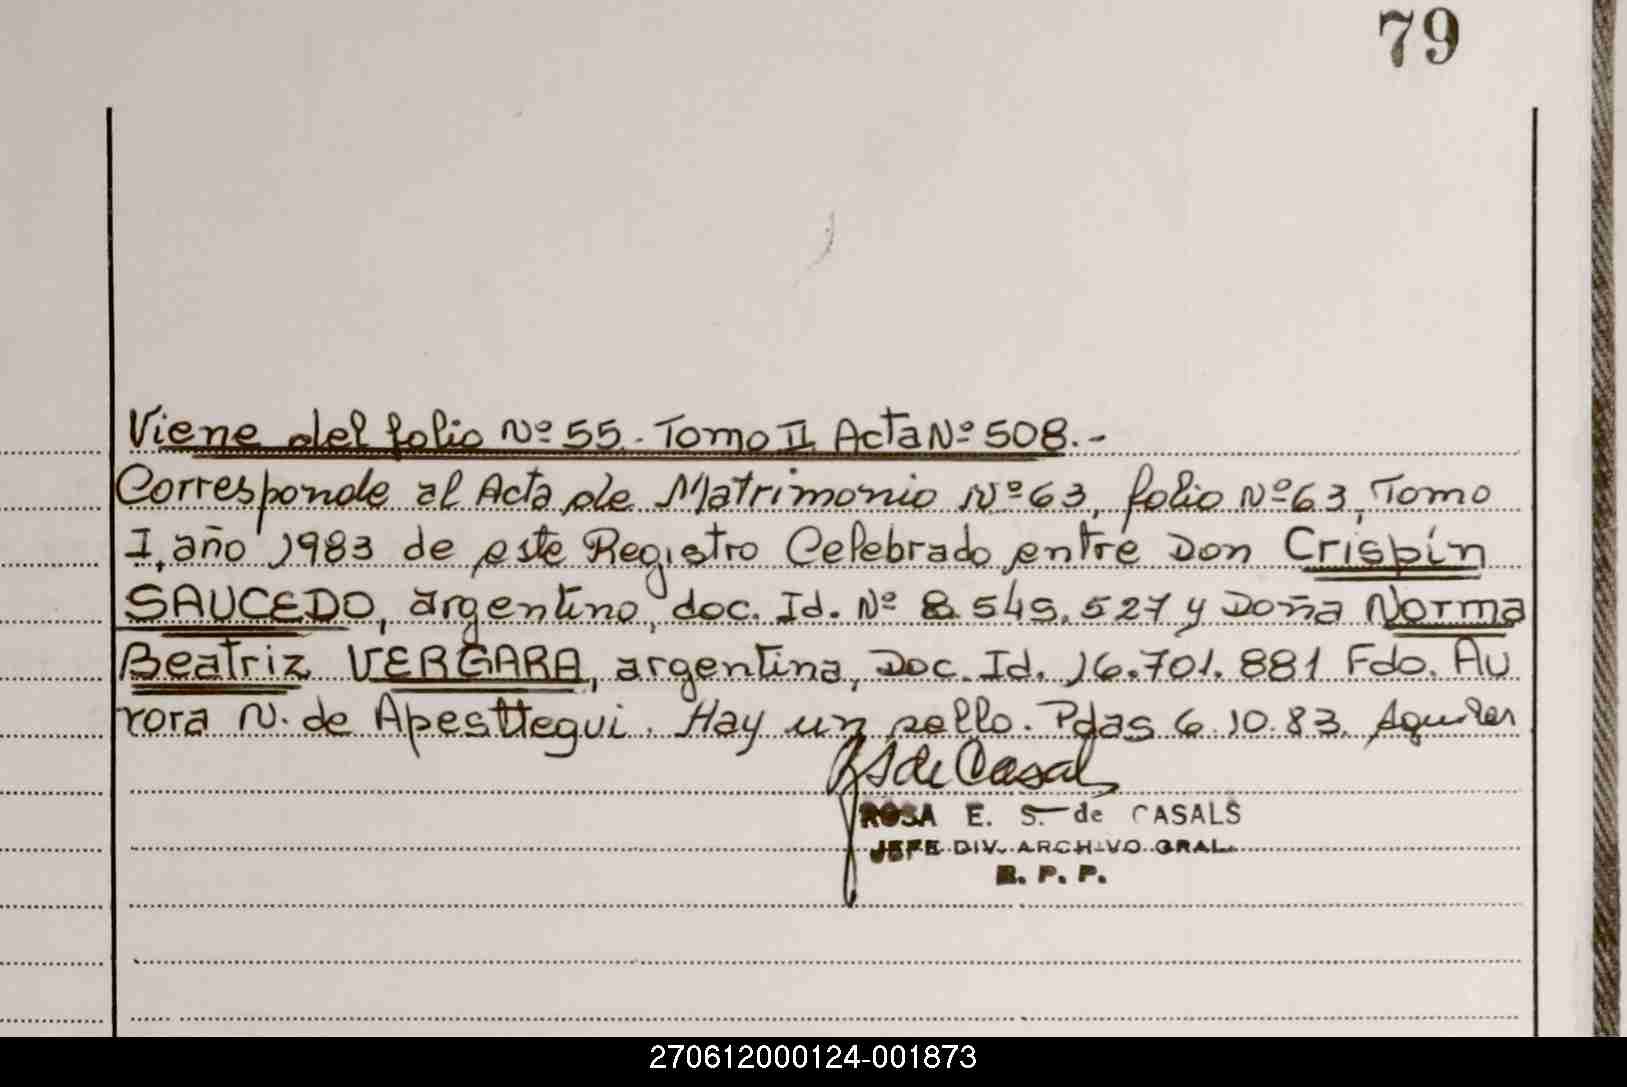 79
Viene del folio Nº 55. Tomo II Acta Nº 508.-
Corresponde al Acta de Matrimonio Nº 63, folio Nº 63, Tomo
I, año 1983 de este Registro Celebrado entre Don Crispín
SAUCEDO, argentino, doc. Id. Nº 8.549.527 y Doña Norma
Beatriz VERGARA, argentina, Doc. Id. 16.701.881 Fdo. Au
rora N. de Apesttegui. Hay un sello. Pdas 6.10.83. Aguilar
RS de Casals
ROSA E. S. de CASALS
JEFE DIV. ARCHIVO GRAL.
R. P. P.
270612000124-001873